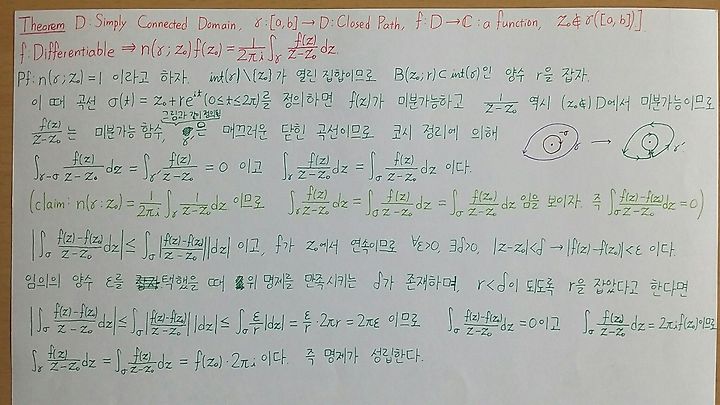 Theorem D: Simply Connected Domain, γ:[a,b]→D: Closed Path, f:D→ℂ: a function, z₀∉γ([a,b])]
f: Differentiable ⇒ n(γ;z₀)f(z₀)=1/2πi ∫γ f(z)/z-z₀ dz.
Pf: n(γ;z₀)=1 이라고 하자. int(γ)\{z₀}가 열린 집합이므로 B(z₀;r)⊂int(γ)인 양수 r을 잡자.
이 때 곡선 σ(t)=z₀+re^it (0≤t≤2π)를 정의하면 f(z)가 미분가능하고 1/z-z₀ 역시 (z₀∉)D에서 미분가능이므로
그림과 같이 정의된
f(z)/z-z₀ 는 미분가능 함수, γ'은 매끄러운 닫힌 곡선이므로 코시 정리에 의해
-σ γ → γ'
∫γ-σ f(z)/z-z₀ dz = ∫γ' f(z)/z-z₀ = 0 이고 ∫γ f(z)/z-z₀ dz = ∫σ f(z)/z-z₀ dz 이다.
(claim: n(γ:z₀)=1/2πi ∫γ 1/z-z₀ dz 이므로 ∫γ f(z)/z-z₀ dz = ∫σ f(z)/z-z₀ dz = ∫σ f(z₀)/z-z₀ dz 임을 보이자. 즉 ∫σ f(z)-f(z₀)/z-z₀ dz=0)
|∫σ f(z)-f(z₀)/z-z₀ dz| ≤ ∫σ |f(z)-f(z₀)/z-z₀||dz| 이고, f가 z₀에서 연속이므로 ∀ε>0, ∃δ>0, |z-z₀|<δ → |f(z)-f(z₀)|<ε 이다.
임의의 양수 ε를 택했을 때 위 명제를 만족시키는 δ가 존재하며, r<δ이 되도록 r을 잡았다고 한다면
|∫σ f(z)-f(z₀)/z-z₀ dz| ≤ ∫σ |f(z)-f(z₀)/z-z₀| |dz| ≤ ∫σ ε/r |dz| = ε/r · 2πr = 2πε 이므로 ∫σ f(z)-f(z₀)/z-z₀ dz = 0 이고 ∫σ f(z₀)/z-z₀ dz = 2πi f(z₀)이므로
∫γ f(z)/z-z₀ dz = ∫σ f(z)/z-z₀ dz = f(z₀)·2πi 이다. 즉 명제가 성립한다.